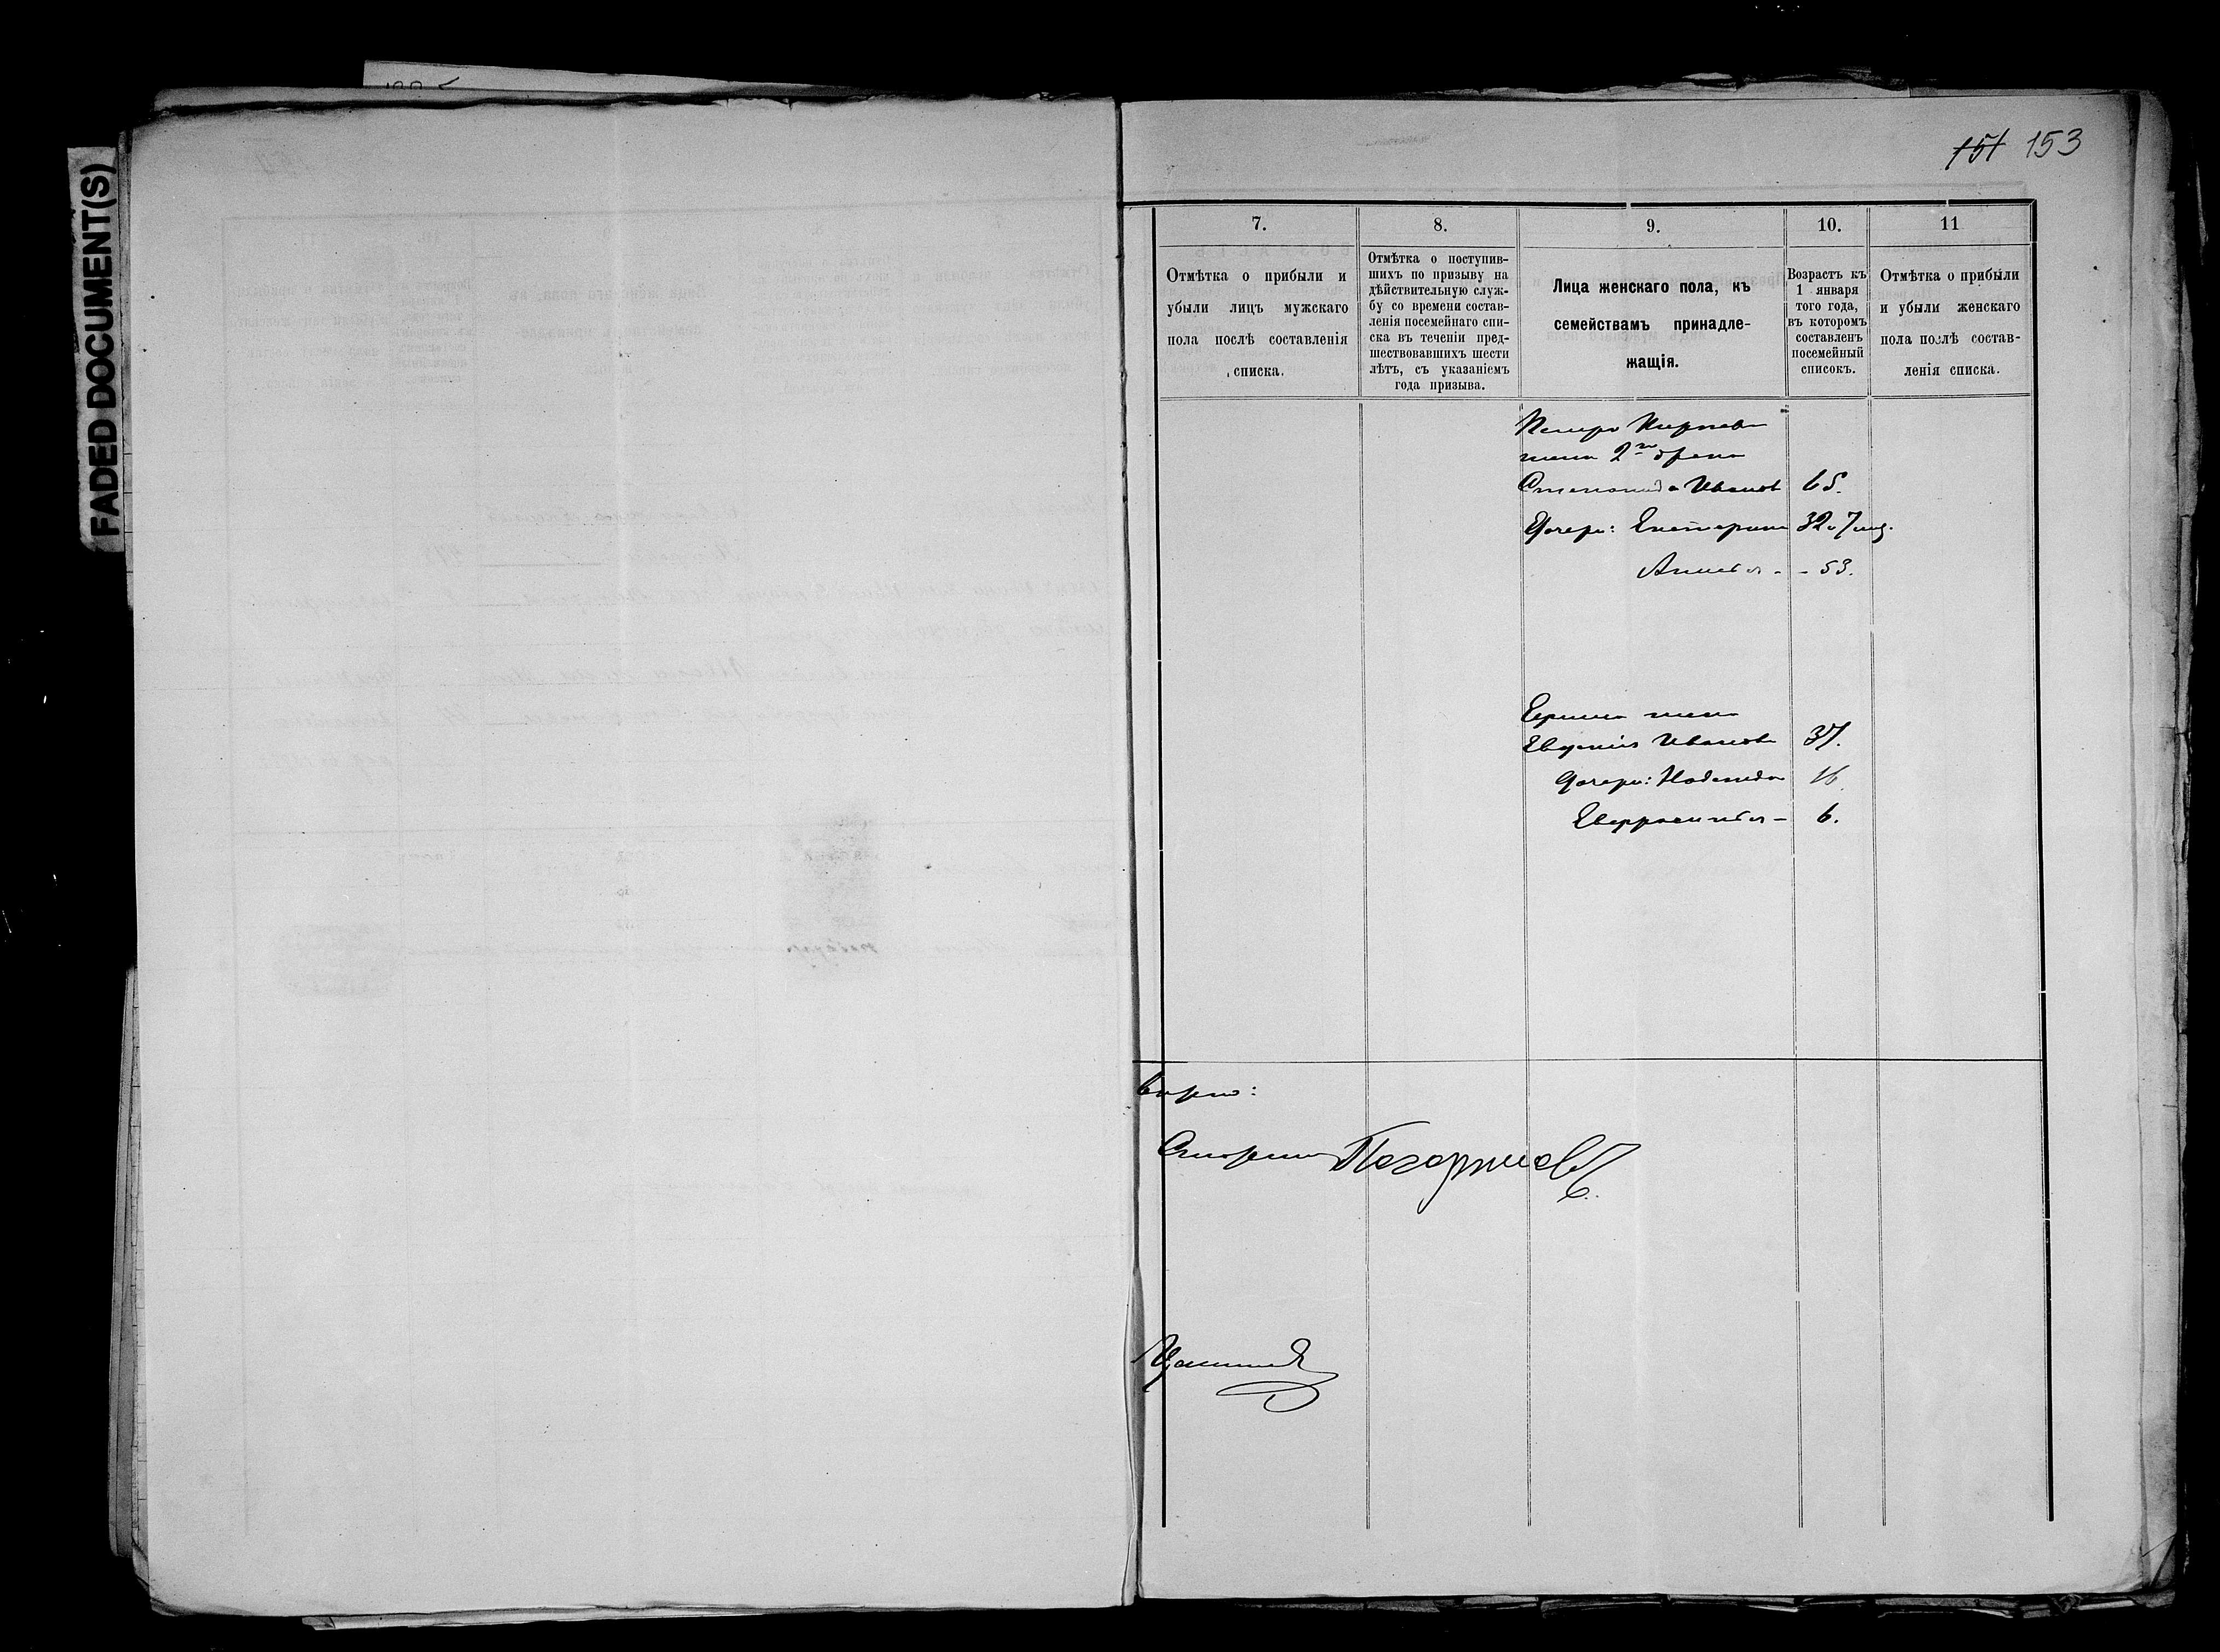 FADED DOCUMENT(S)
151 153
7.
8.
9.
10.
11
Отмѣтка о прибыли и
убыли лицъ мужскаго
пола послѣ составленія
списка.
Отмѣтка о поступив-
шихъ по призыву на
дѣйствительную служ-
бу со времени состав-
ленія посемейнаго спи-
ска въ теченіи пред-
шествовавшихъ шести
лѣтъ, съ указаніемъ
года призыва.
Лица женскаго пола, къ
семействамъ принадле-
жащія.
Возрастъ къ
1 января
того года,
въ которомъ
составленъ
посемейный
списокъ.
Отмѣтка о прибыли
и убыли женскаго
пола послѣ состав-
ленія списка.
жена 2го брака
Степанида Иванов 65.
Дочери: Екатерина 32 и 7 мѣ.
Анисья - - 53.
жена
Евгенія Иванова 37.
Дочери: Надежда 16
Евфросинья - 6.
Вѣрно: